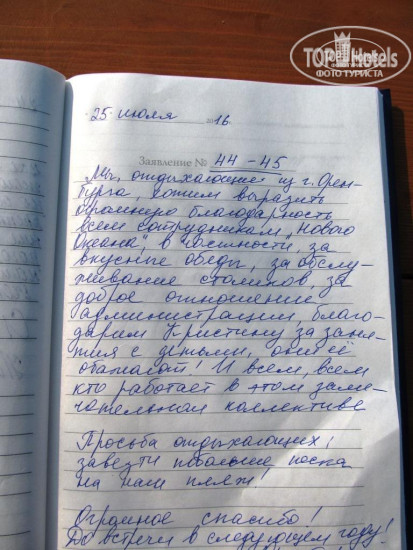 TOPHotels
ФОТО ТУРИСТА
"25" июля 2016
Заявление № 44-45
Мы, отдыхающие из г. Орен-
бурга, хотим выразить
огромную благодарность
всем сотрудникам "Нового
Океана" в частности, за
вкусные обеды, за обслу-
живание столиков, за
доброе отношение
администрации, благо-
дарим Кристину за заня-
тия с детьми, они её
обожают! И всем, всем
кто работает в этом заме-
чательном коллективе
Просьба отдыхающих!
завезти побольше песка
на наш пляж!
Огромное спасибо!
До встречи в следующем году!